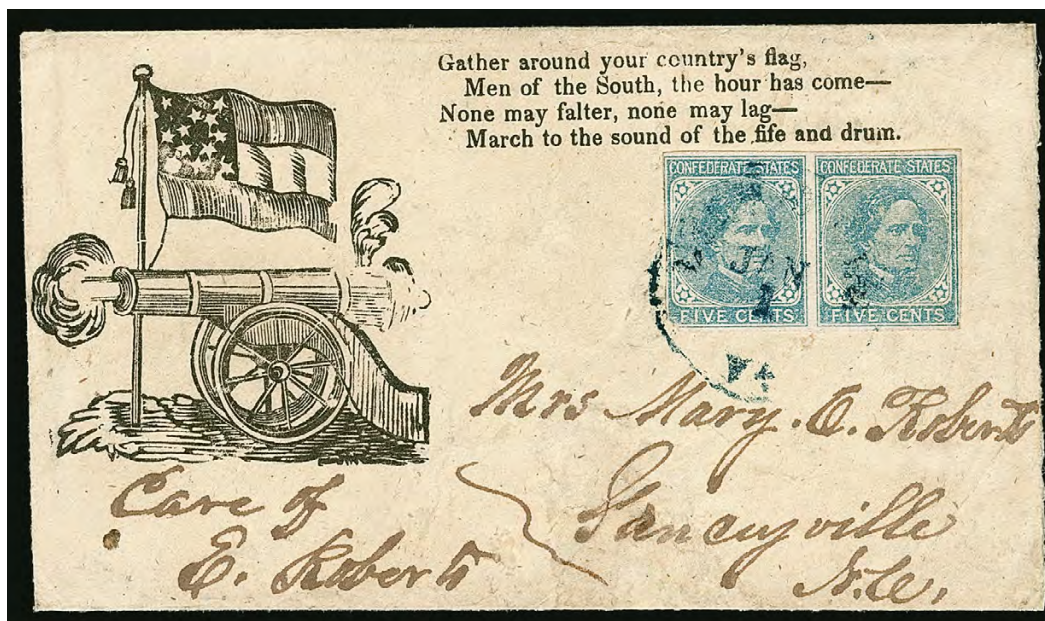 Gather around your country's flag,
Men of the South, the hour has come—
None may falter, none may lag—
March to the sound of the fife and drum.
CONFEDERATE STATES
FIVE CENTS
CONFEDERATE STATES
FIVE CENTS
JAN
1
VA
Mrs Mary. C. Roberts
Yanceyville
N.C.
Care of
E. Roberts